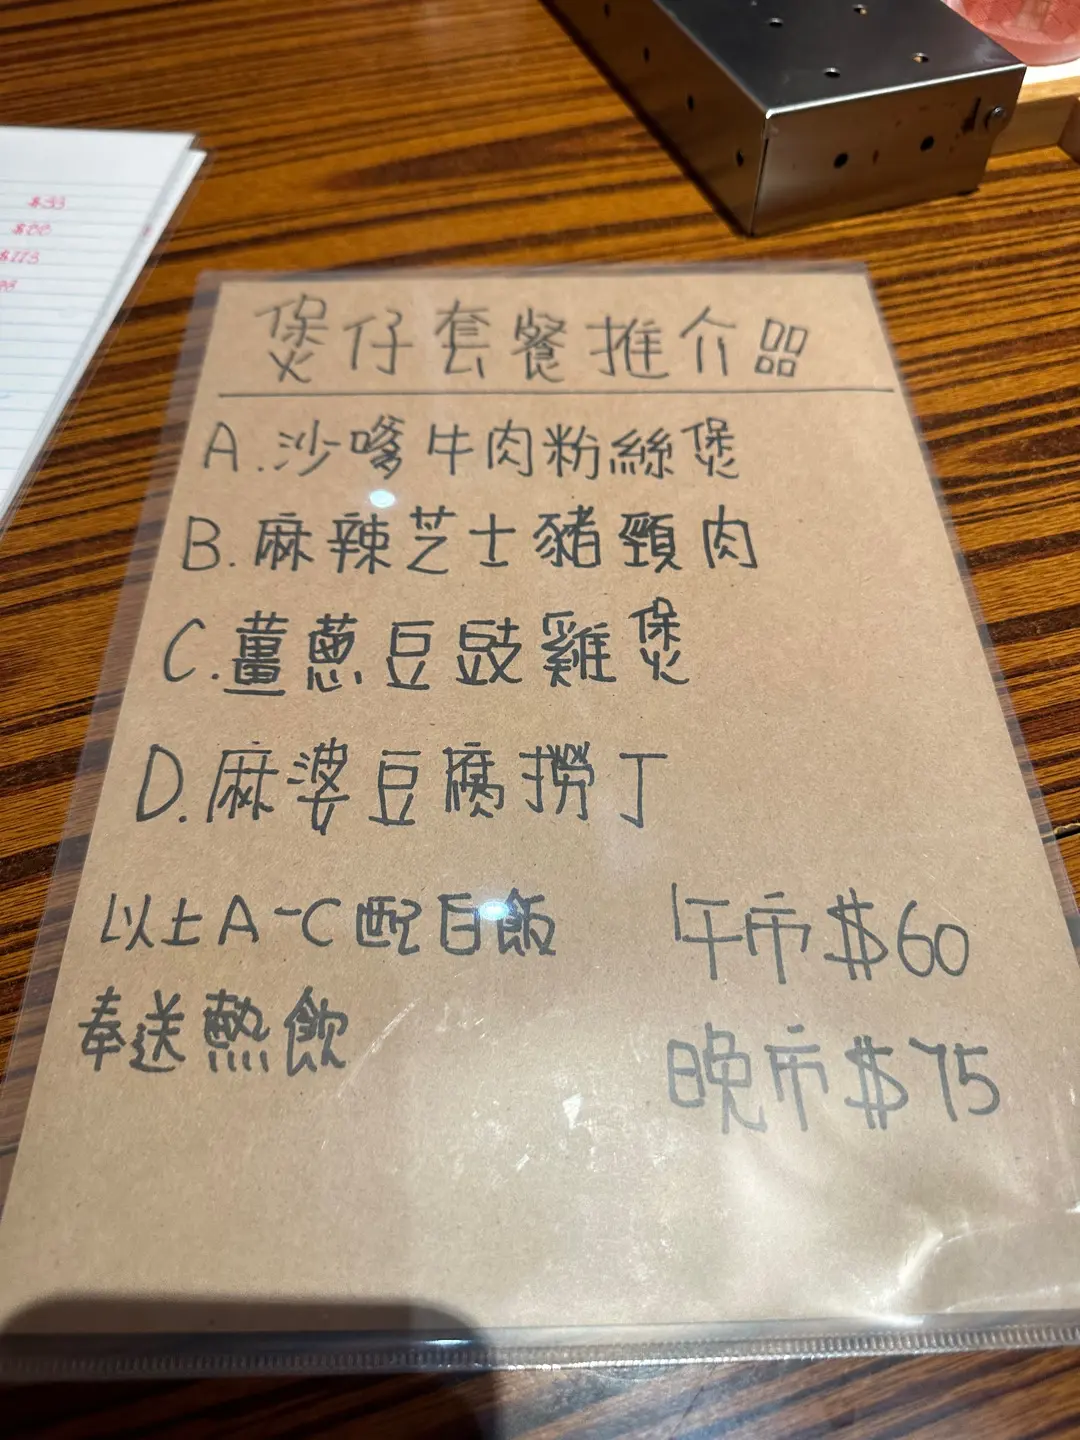 $33
$113
煲仔套餐推介品
A.沙嗲牛肉粉絲煲
B.麻辣芝士豬頸肉
C.薑蔥豆豉雞煲
D.麻婆豆腐撈丁
以上A-C配白飯
奉送熱飲
午市$60
晚市$75